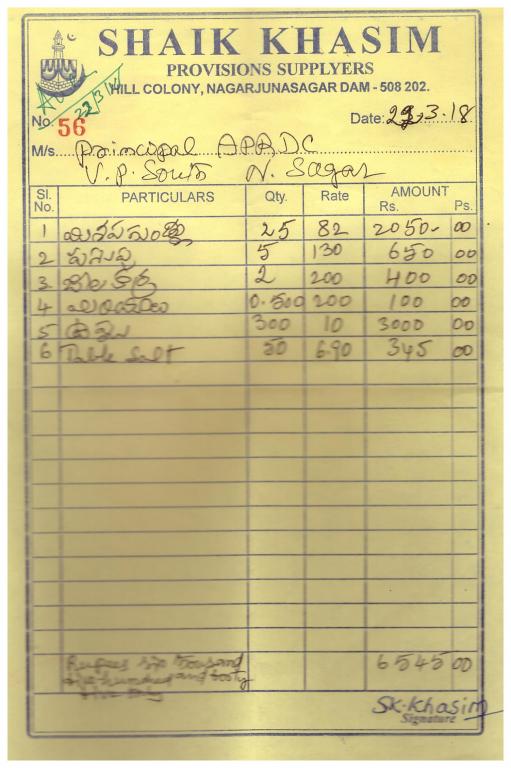 SHAIK KHASIM
PROVISIONS SUPPLYERS
HILL COLONY, NAGARJUNASAGAR DAM - 508 202.
22/3/18
No. 56 Date: 22.3.18
M/s. Principal APRDC
V.P. South N. Sagar
Sl. No. PARTICULARS Qty. Rate AMOUNT Rs. Ps.
1 మినపగుండ్లు 25 82 2050- 00
2 5 130 650 00
3 2 200 400 00
4 0.500 200 100 00
5 300 10 3000 00
6 Table Salt 50 6.90 345 00
Rupees six thousand 6545 00
five hundred and forty
five only
SK.Khasim
Signature